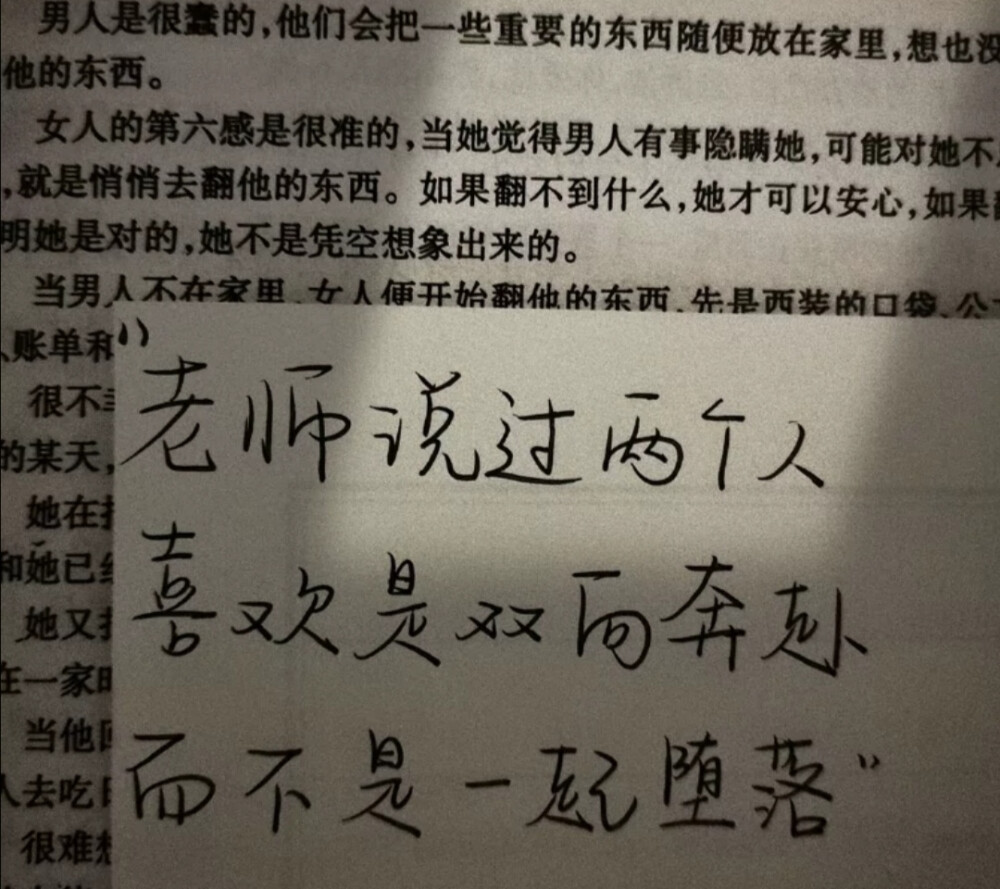 男人是很蠢的,他们会把一些重要的东西随便放在家里,想也没
他的东西。
女人的第六感是很准的,当她觉得男人有事隐瞒她,可能对她不
,就是悄悄去翻他的东西。如果翻不到什么,她才可以安心,如果
明她是对的,她不是凭空想象出来的。
当男人不在家里,女人便开始翻他的东西,先是西装的口袋、公
、账单和
很不幸
的某天,
她在
和她已经
她又
在一家
当他
人去吃
很难想
“
老师说过两个人
喜欢是双向奔赴
而不是一起堕落”